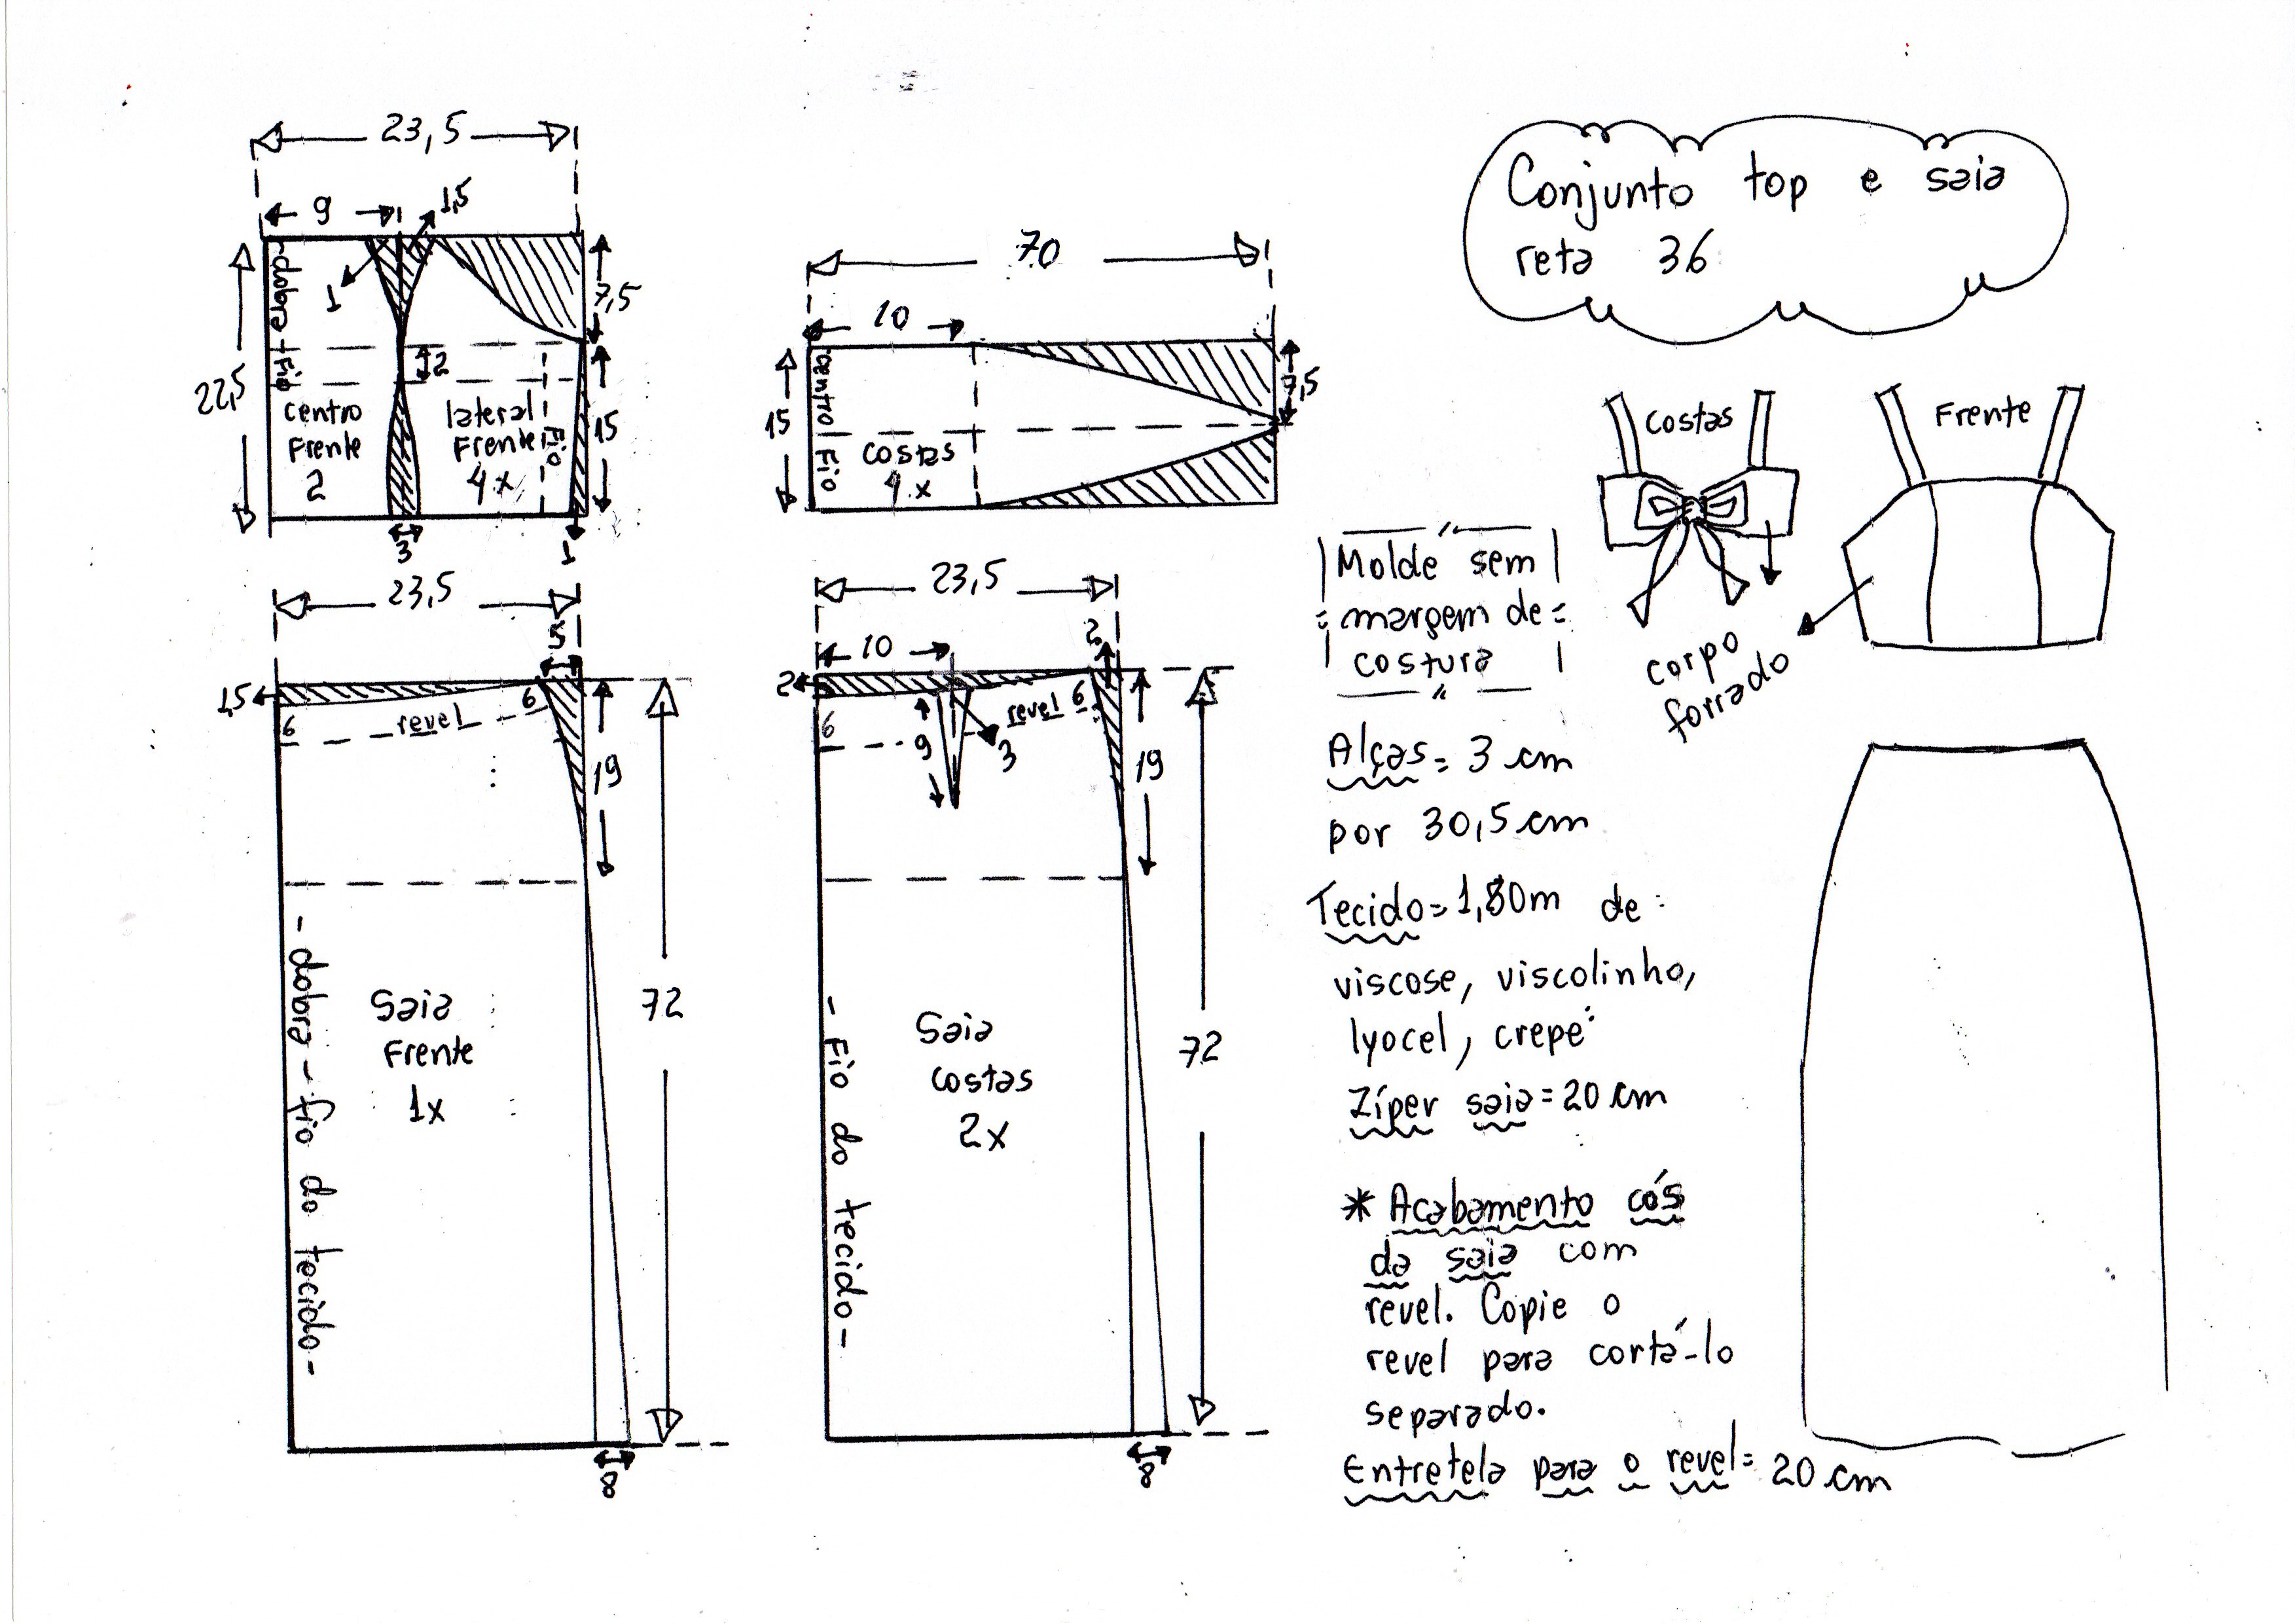 Conjunto top e saia
reta 36
23,5
9
1,5
1
dobra - fio
7,5
22,5
2
centro
Frente
2
lateral
Frente
4x
Fio
15
3
1
70
10
7,5
15
centro
Fio
costas
4x
Costas
Frente
corpo
forrado
Molde sem
margem de
costura
Alças = 3 cm
por 30,5 cm
Tecido = 1,80m de
viscose, viscolinho,
lyocel, crepe
Zíper saia = 20 cm
* Acabamento cós
da saia com
revel. Copie o
revel para cortá-lo
separado.
Entretela para o revel = 20 cm
23,5
5
1,5
6
revel
6
19
72
- dobra - fio do tecido -
Saia
Frente
1x
8
23,5
10
2
2
6
revel 6
9
3
19
72
- Fio do tecido -
Saia
costas
2x
8